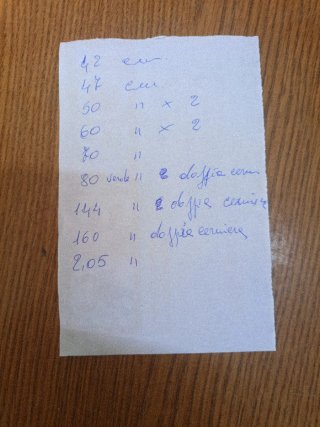 42 cm.
47 cm
50 " x 2
60 " x 2
70 "
80 verde " 2 doppia cern
144 " 2 doppia cerniera
160 " doppia cerniera
2,05 "